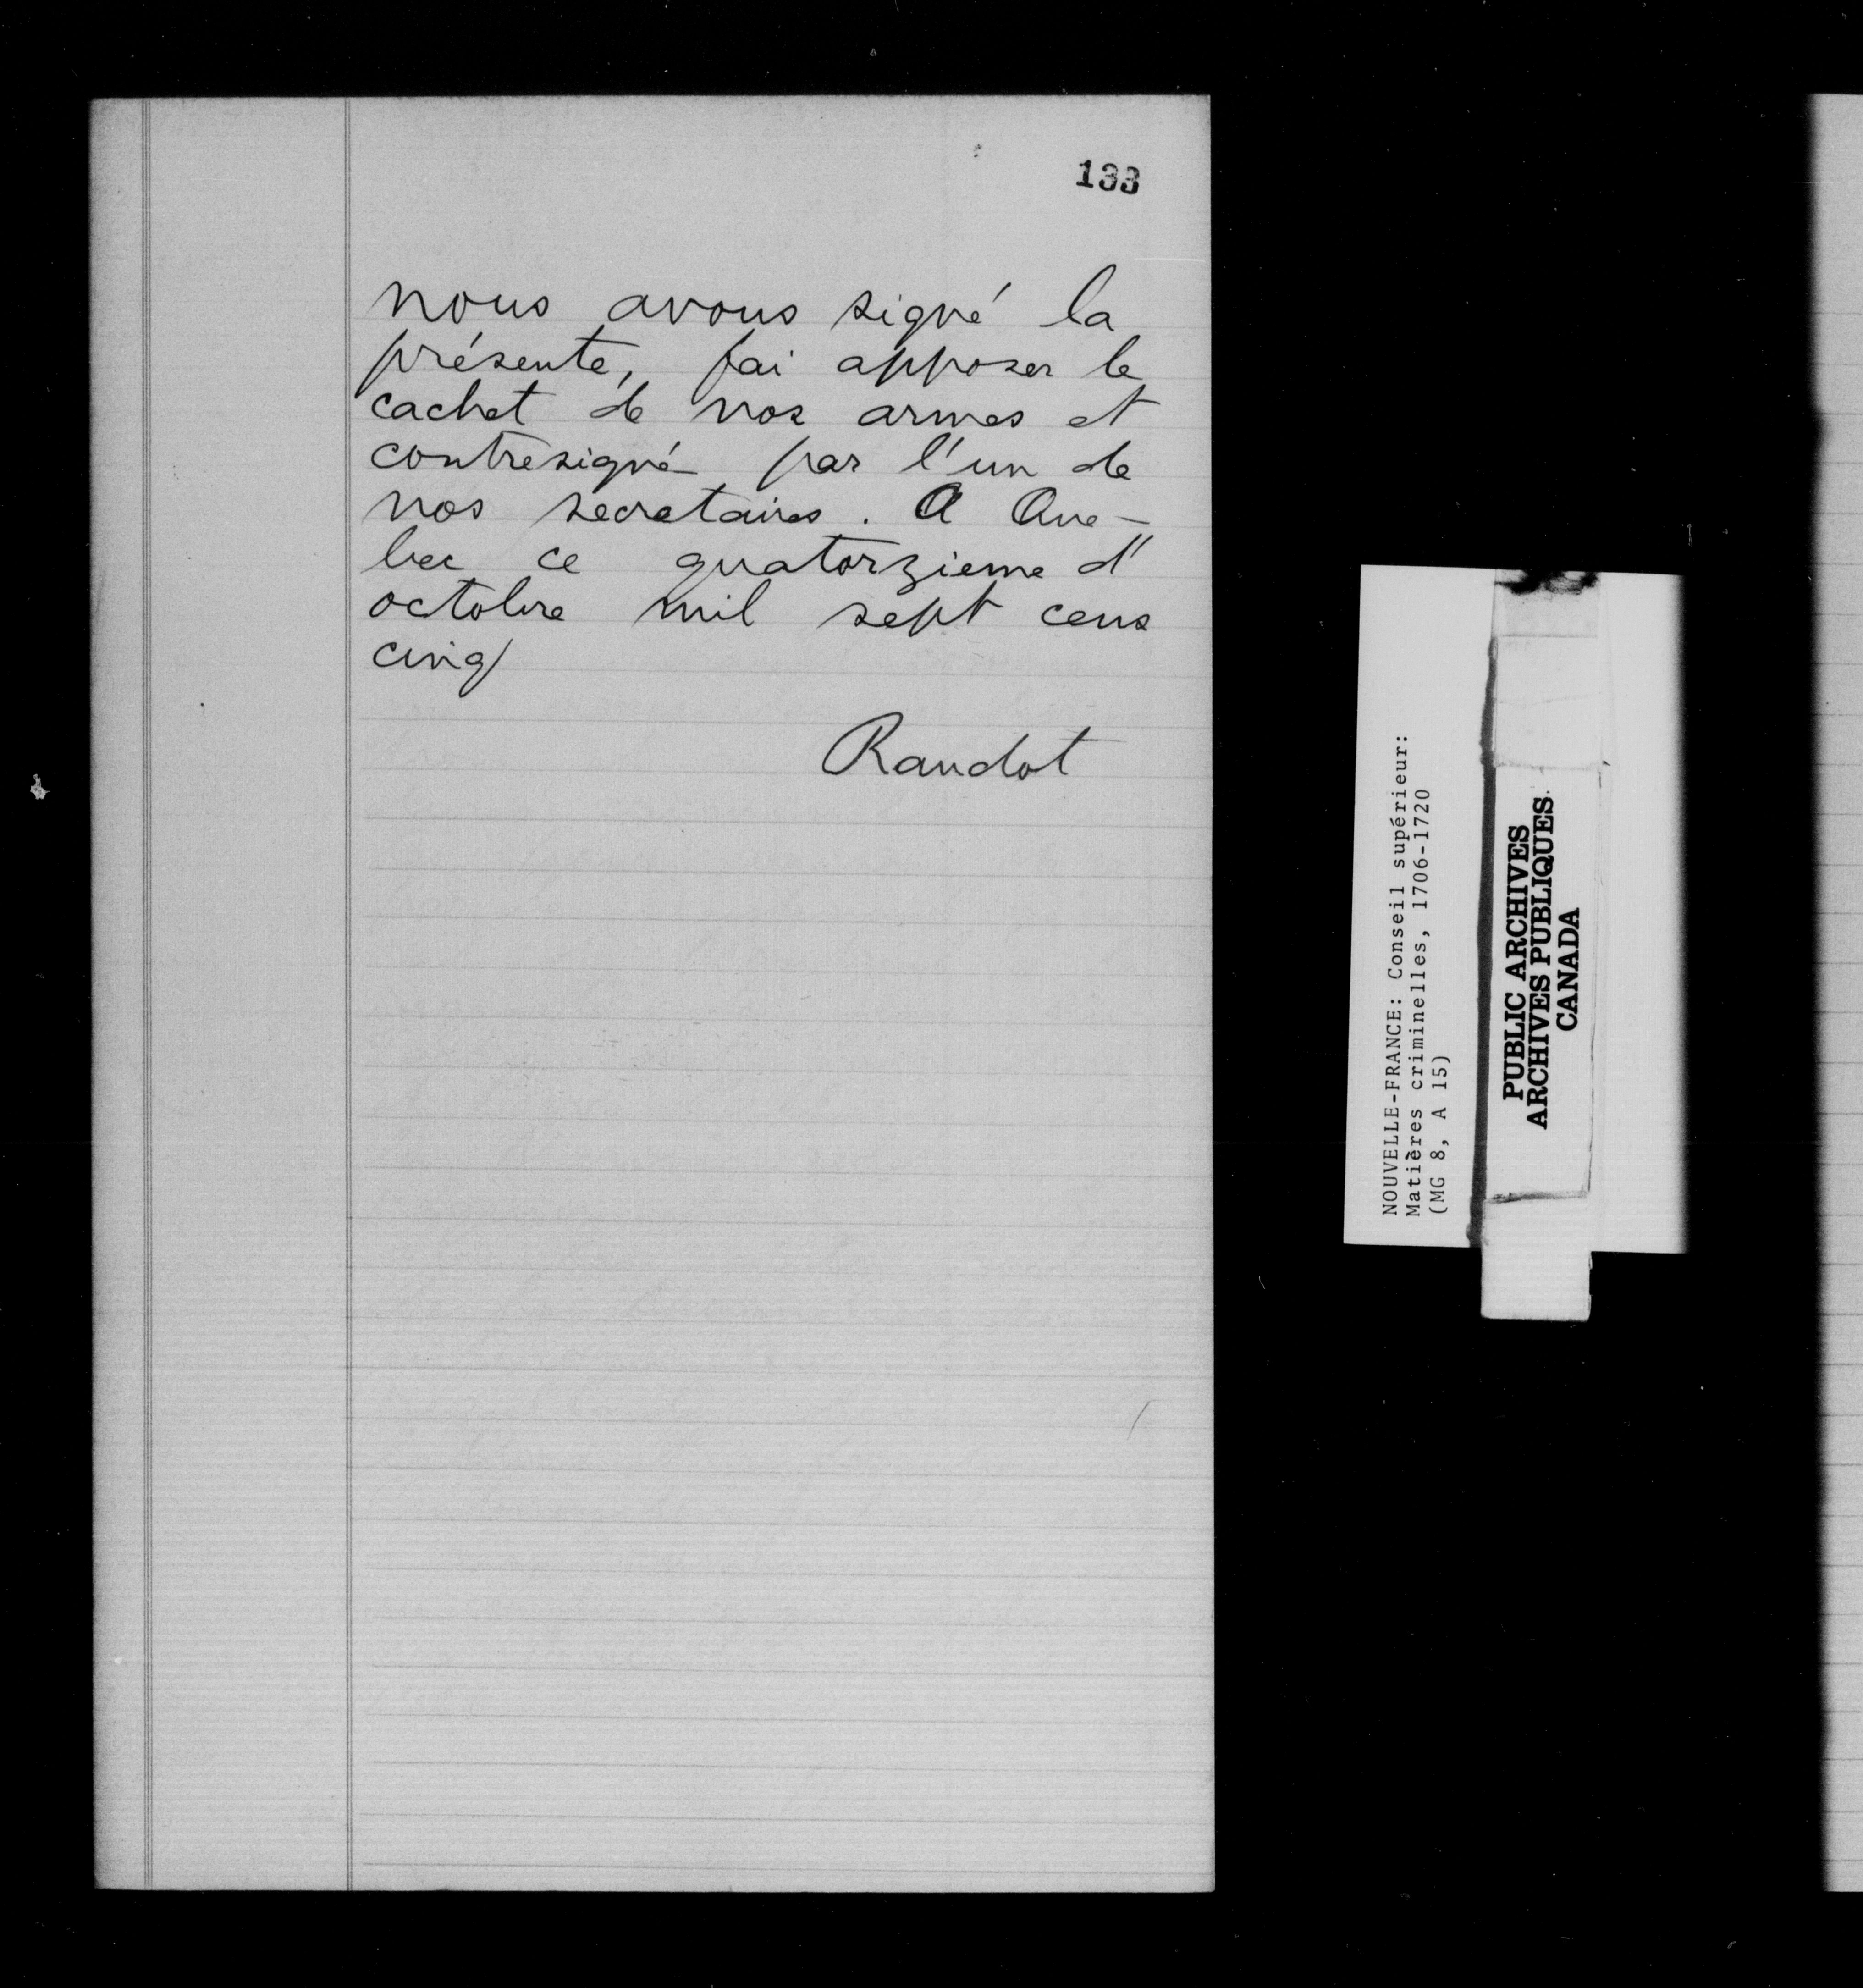 133
nous avons signé la
présente, fai apposer le
cachet de nos armes et
contresigné par l'un de
nos secretaires. A Que-
bec ce quatorzieme d'
octobre mil sept cens
cinq
Raudot
NOUVELLE-FRANCE: Conseil supérieur:
Matières criminelles, 1706-1720
(MG 8, A 15)
PUBLIC ARCHIVES
ARCHIVES PUBLIQUES
CANADA